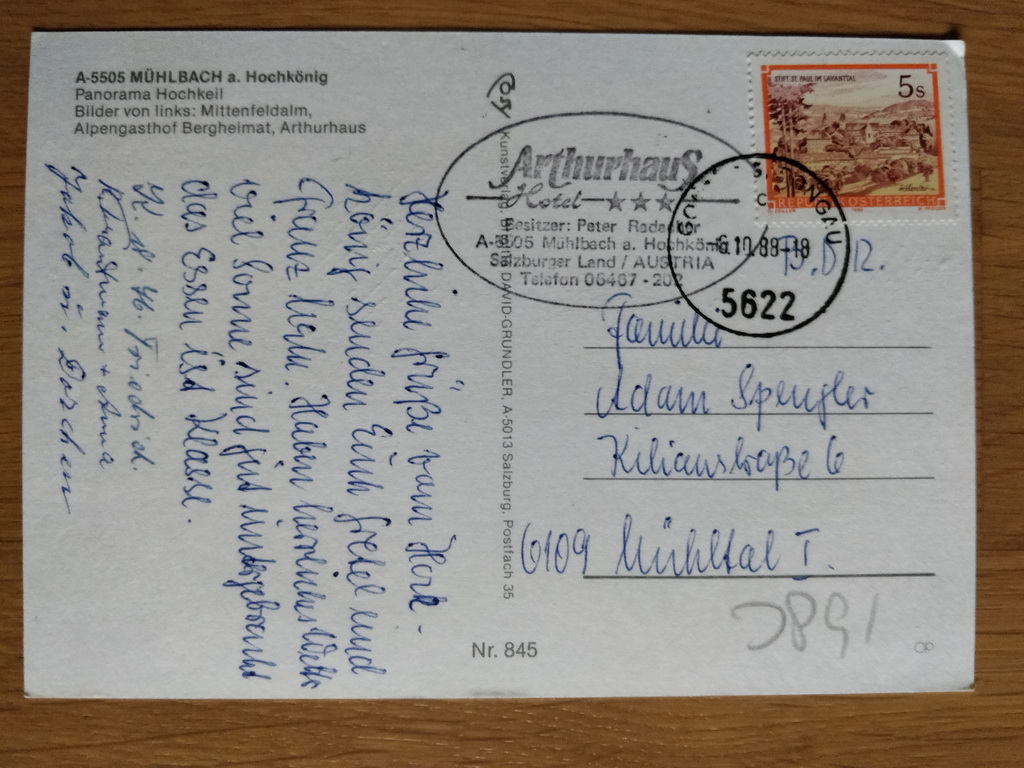 A-5505 MÜHLBACH a. Hochkönig
Panorama Hochkeil
Bilder von links: Mittenfeldalm,
Alpengasthof Bergheimat, Arthurhaus
Herzliche Grüße vom Hoch-
könig senden Euch Gretel und
Franz Hehn. Haben herrliches Wetter
viel Sonne sind gut untergebracht
das Essen ist klasse.
Friedrich
Jakob u. Dorchen
Kunstverlag DAVID-GRUNDLER, A-5013 Salzburg, Postfach 35
Arthurhaus
Hotel ★★★
Besitzer: Peter
A-5505 Mühlbach a. Hochkönig
Salzburger Land / AUSTRIA
Telefon 06467 - 202
STIFT ST. PAUL IM LAVANTTAL
5s
REPUBLIK ÖSTERREICH
-6.10.88-18
5622
Familie
Adam Spengler
Kilianstraße 6
6109 Mühltal I.
Nr. 845